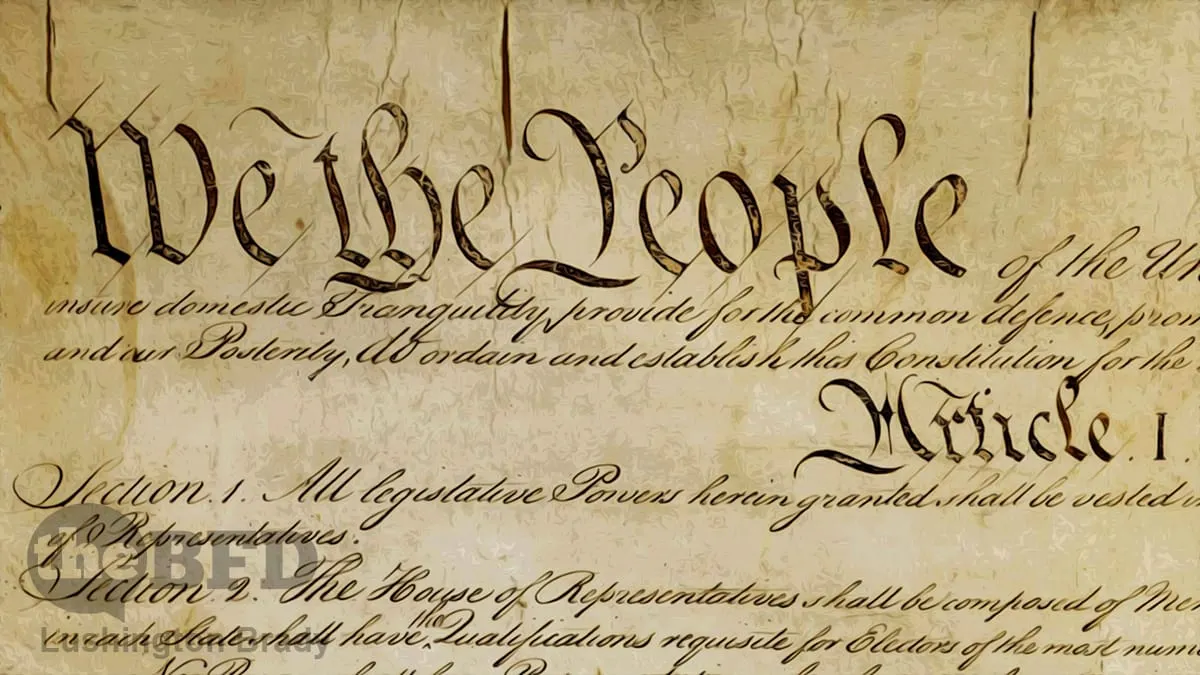 We the People of the Un
insure domestic Tranquility, provide for the common defence, prom
and our Posterity, do ordain and establish this Constitution for the
Article. I.
Section. 1. All legislative Powers herein granted shall be vested in
of Representatives.
Section. 2. The House of Representatives shall be composed of Me
in each State shall have the Qualifications requisite for Electors of the most num
No Person shall
the BFD
Lushington Brady